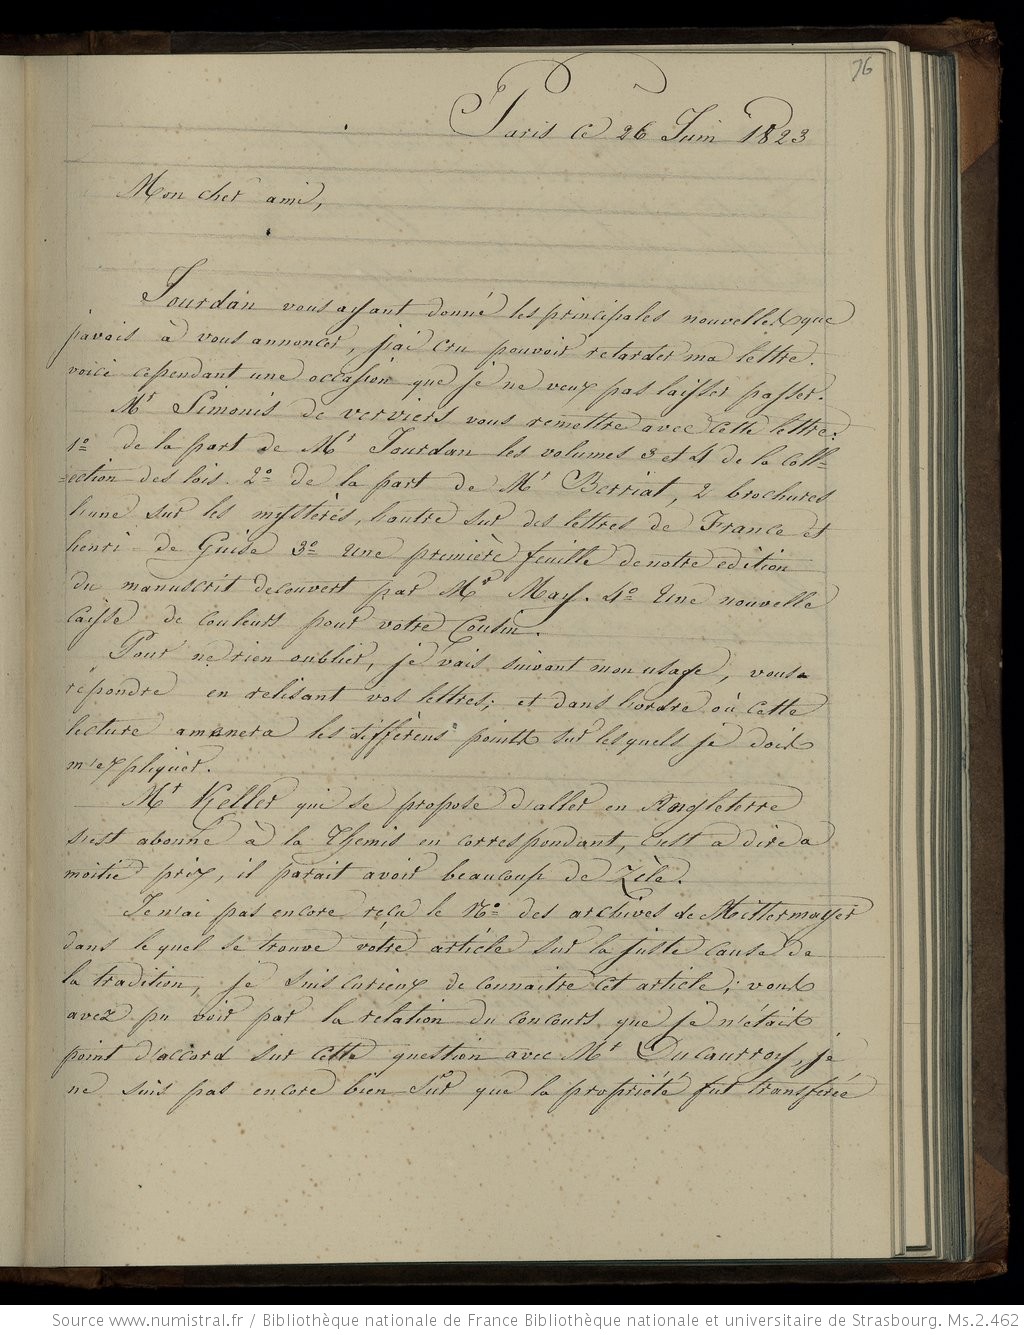 76
Paris ce 26 Juin 1823
Mon cher ami,
Jourdan vous ayant donné les principales nouvelles que
j'avois à vous annoncer, j'ai cru pouvoir retarder ma lettre.
voici cependant une occasion que je ne veux pas laisser passer.
Mr Simonis de verviers vous remettra avec cette lettre:
1o de la part de Mr Jourdan les volumes 3 et 4 de la coll=
=ection des lois. 2o de la part de Mr Berriat, 2 brochures
l'une sur les mystères, l'autre sur des lettres de France et
henri de Guise 3o une première feuille de notre edition
du manuscrit decouvert par Mr May. 4o Une nouvelle
caisse de couleurs pour votre Cousin.
Pour ne rien oublier, je vais suivant mon usage, vous
répondre en relisant vos lettres; et dans l'ordre où cette
lecture amenera les différens points sur lesquels je dois
m'expliquer.
Mr Keller qui se propose d'aller en Angleterre
s'est abonné à la Themis en correspondant, c'est a dire a
moitié prix, il parait avoir beaucoup de Zèle.
Je n'ai pas encore reçu le No des archives de Mittermayer
dans lequel se trouve votre article sur la juste cause de
la tradition, je suis curieux de connaitre cet article; vous
avez pu voir par la relation du concours que je n'étais
point d'accord sur cette question avec Mr Ducaurroy, je
ne suis pas encore bien Sur que la propriété fut transférée
Source www.numistral.fr / Bibliothèque nationale de France Bibliothèque nationale et universitaire de Strasbourg. Ms.2.462